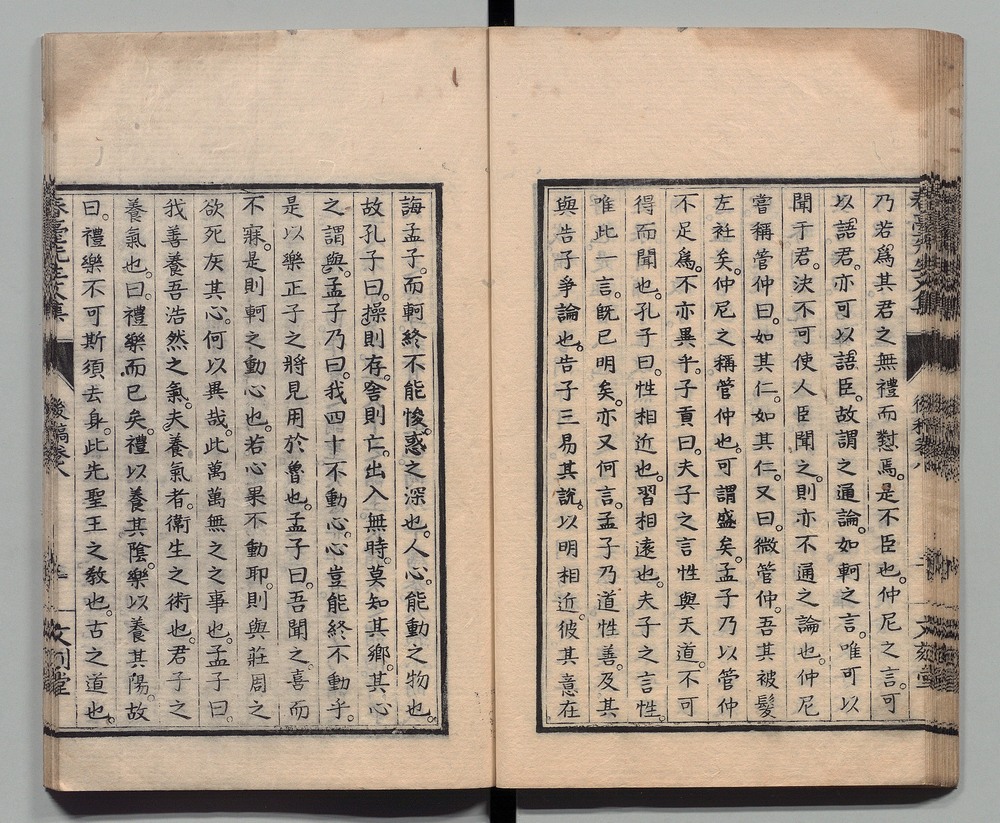 乃若爲其君之無禮而懟焉。是不臣也。仲尼之言。可
以語君。亦可以語臣。故謂之通論。如軻之言。唯可以
聞于君。決不可使人臣聞之。則亦不通之論也。仲尼
嘗稱管仲曰。如其仁。如其仁。又曰。微管仲。吾其被髮
左衽矣。仲尼之稱管仲也。可謂盛矣。孟子乃以管仲
不足爲。不亦異乎。子貢曰。夫子之言性與天道。不可
得而聞也。孔子曰。性相近也。習相遠也。夫子之言性。
唯此一言。旣已明矣。亦又何言。孟子乃道性善。及其
與告子爭論也。告子三易其說。以明相近。彼其意在
誨孟子。而軻終不能悛。惑之深也。人心。能動之物也。
故孔子曰。操則存。舍則亡。出入無時。莫知其鄉。其心
之謂與。孟子乃曰。我四十不動心。心豈能終不動乎。
是以樂正子之將見用於魯也。孟子曰。吾聞之。喜而
不寐。是則軻之動心也。若心果不動耶。則與莊周之
欲死灰其心。何以異哉。此萬萬無之之事也。孟子曰。
我善養吾浩然之氣。夫養氣者。衞生之術也。君子之
養氣也。曰。禮樂而已矣。禮以養其陰。樂以養其陽。故
曰。禮樂不可斯須去身。此先聖王之敎也。古之道也。
春臺先生文集
後稿卷八